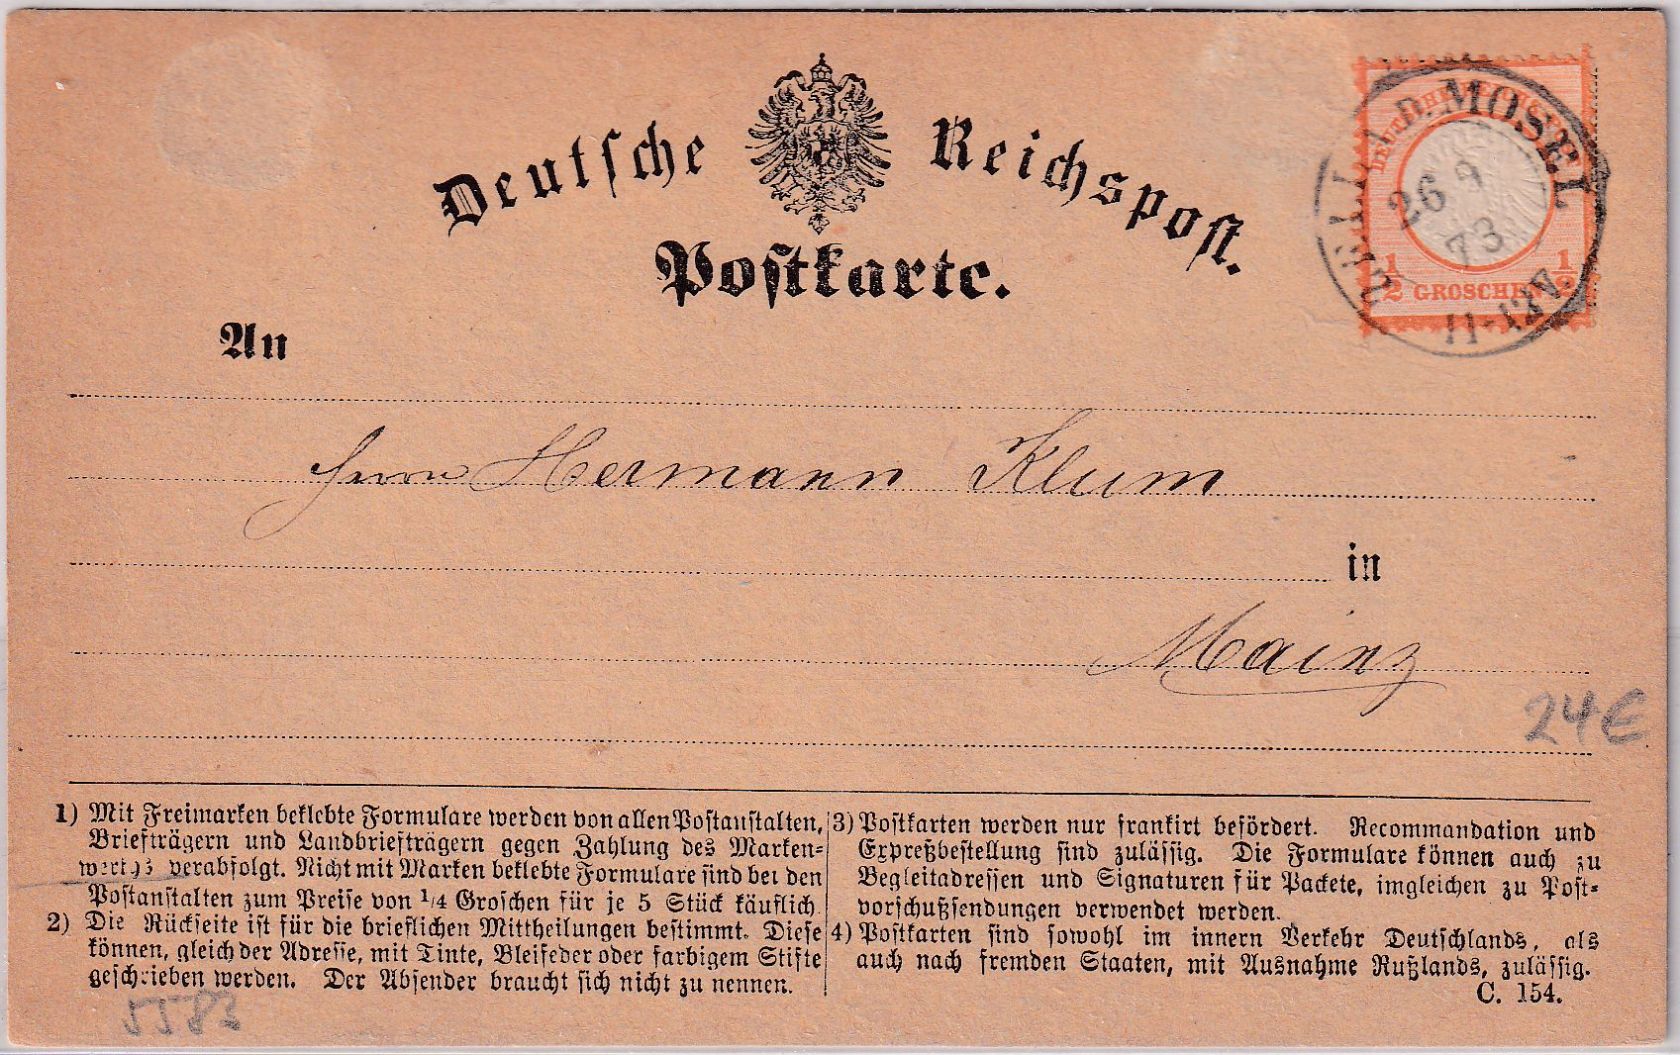 Deutsche Reichspost.
Postkarte.
ZELL A.D. MOSEL
26 9
73
11-12V
1/2 GROSCHEN 1/2
An
Herrn Hermann Klum
in
Mainz
24€
1) Mit Freimarken beklebte Formulare werden von allen Postanstalten,
Briefträgern und Landbriefträgern gegen Zahlung des Marken=
werthes verabfolgt. Nicht mit Marken beklebte Formulare sind bei den
Postanstalten zum Preise von 1/4 Groschen für je 5 Stück käuflich.
2) Die Rückseite ist für die brieflichen Mittheilungen bestimmt. Diese
können, gleich der Adresse, mit Tinte, Bleifeder oder farbigem Stifte
geschrieben werden. Der Absender braucht sich nicht zu nennen.
3) Postkarten werden nur frankirt befördert. Recommandation und
Expreßbestellung sind zulässig. Die Formulare können auch zu
Begleitadressen und Signaturen für Packete, imgleichen zu Post=
vorschußsendungen verwendet werden.
4) Postkarten sind sowohl im innern Verkehr Deutschlands, als
auch nach fremden Staaten, mit Ausnahme Rußlands, zulässig.
C. 154.
5583